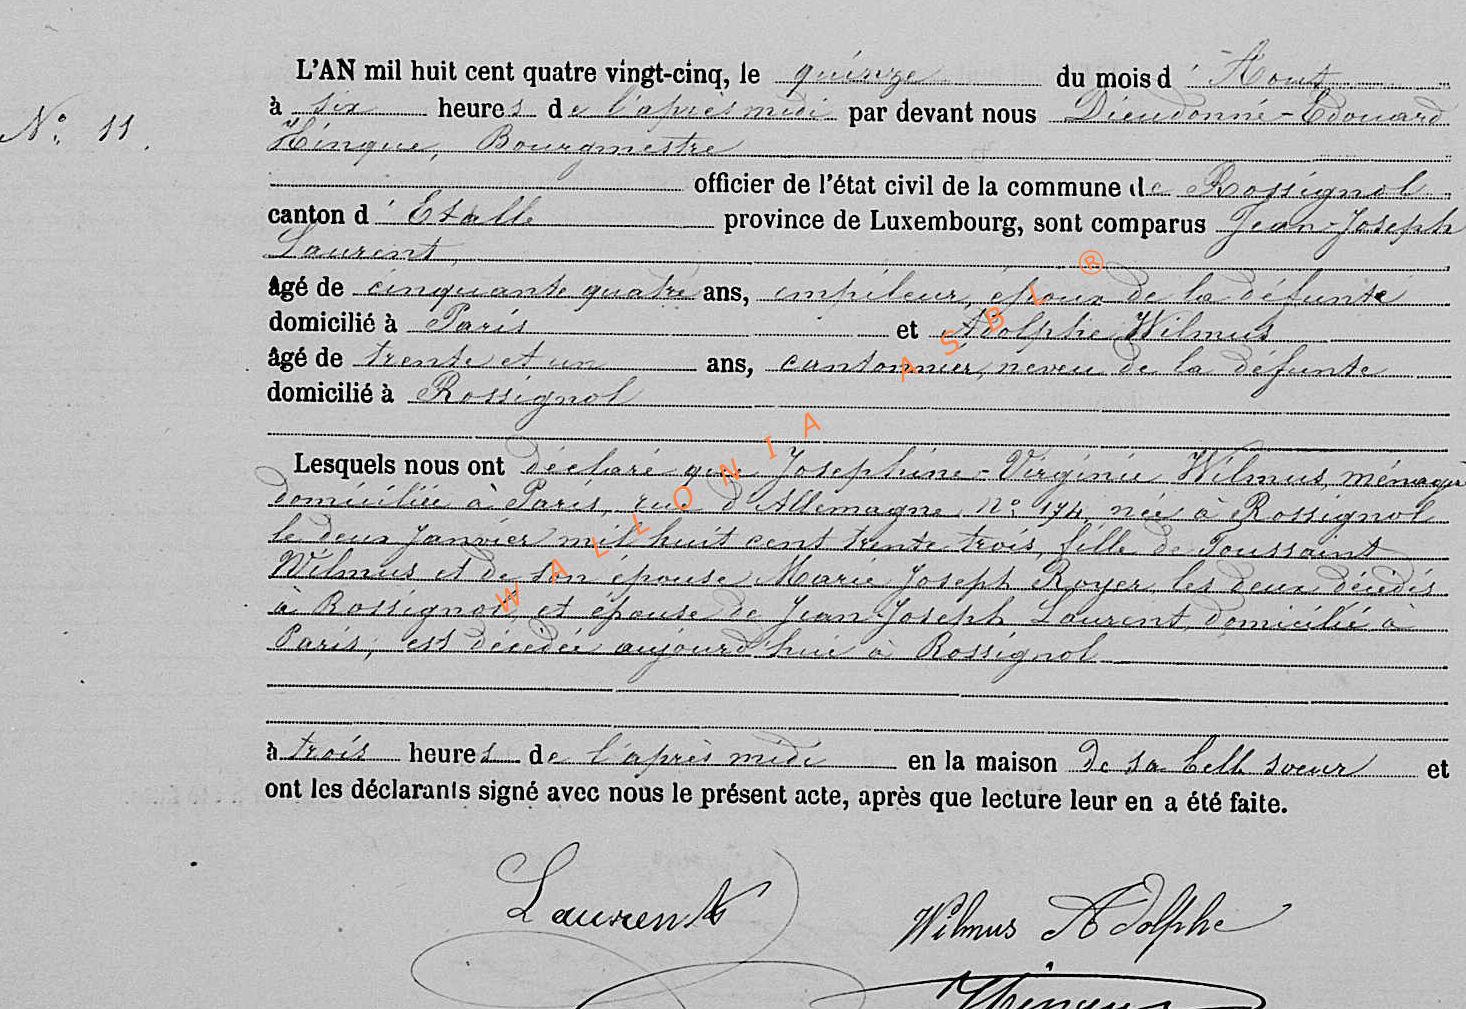 L'AN mil huit cent quatre vingt-cinq, le quinze du mois d'Aout
à six heures de l'après midi par devant nous Dieudonné-Edouard
N° 11. Hinque, Bourgmestre
officier de l'état civil de la commune de Rossignol
canton d'Etalle province de Luxembourg, sont comparus Jean-Joseph
Laurent,
âgé de cinquante quatre ans, empileur, époux de la défunte
domicilié à Paris et Adolphe Wilmus
âgé de trente et un ans, cantonnier, neveu de la défunte
domicilié à Rossignol
Lesquels nous ont déclaré que Josephine-Virginie Wilmus, ménagère
domiciliée à Paris, rue d'Allemagne N° 174, née à Rossignol
le deux Janvier mil huit cent trente trois, fille de Toussaint
Wilmus et de son épouse Marie Joseph Royer, les deux décédés
à Rossignol, et épouse de Jean-Joseph Laurent, domicilié à
Paris, est décédée aujourd'hui à Rossignol
à trois heures de l'après midi en la maison de sa belle soeur et
ont les déclarants signé avec nous le présent acte, après que lecture leur en a été faite.
Laurent
Wilmus Adolphe
Hinque
WALLONIA ASBL ®